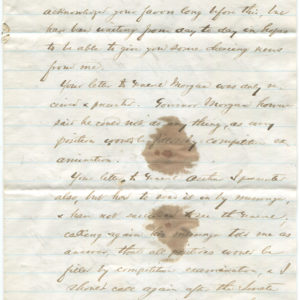 acknowledged your favors long before this, but
have been waiting from day to day in hopes
to be able to give you some cheering news
from me.
Your letter to General Morgan was duly re
ceived & presented. Governor Morgan however
said he could not do any thing, as every
position would be competitive ex
amination.
Your letter to General I presented
also, but he sent in by message,
& have not succeeded to see the General,
calling again the message told me as
answer, that all positions would be
filled by competitive examination, & I
should call again after the Senate